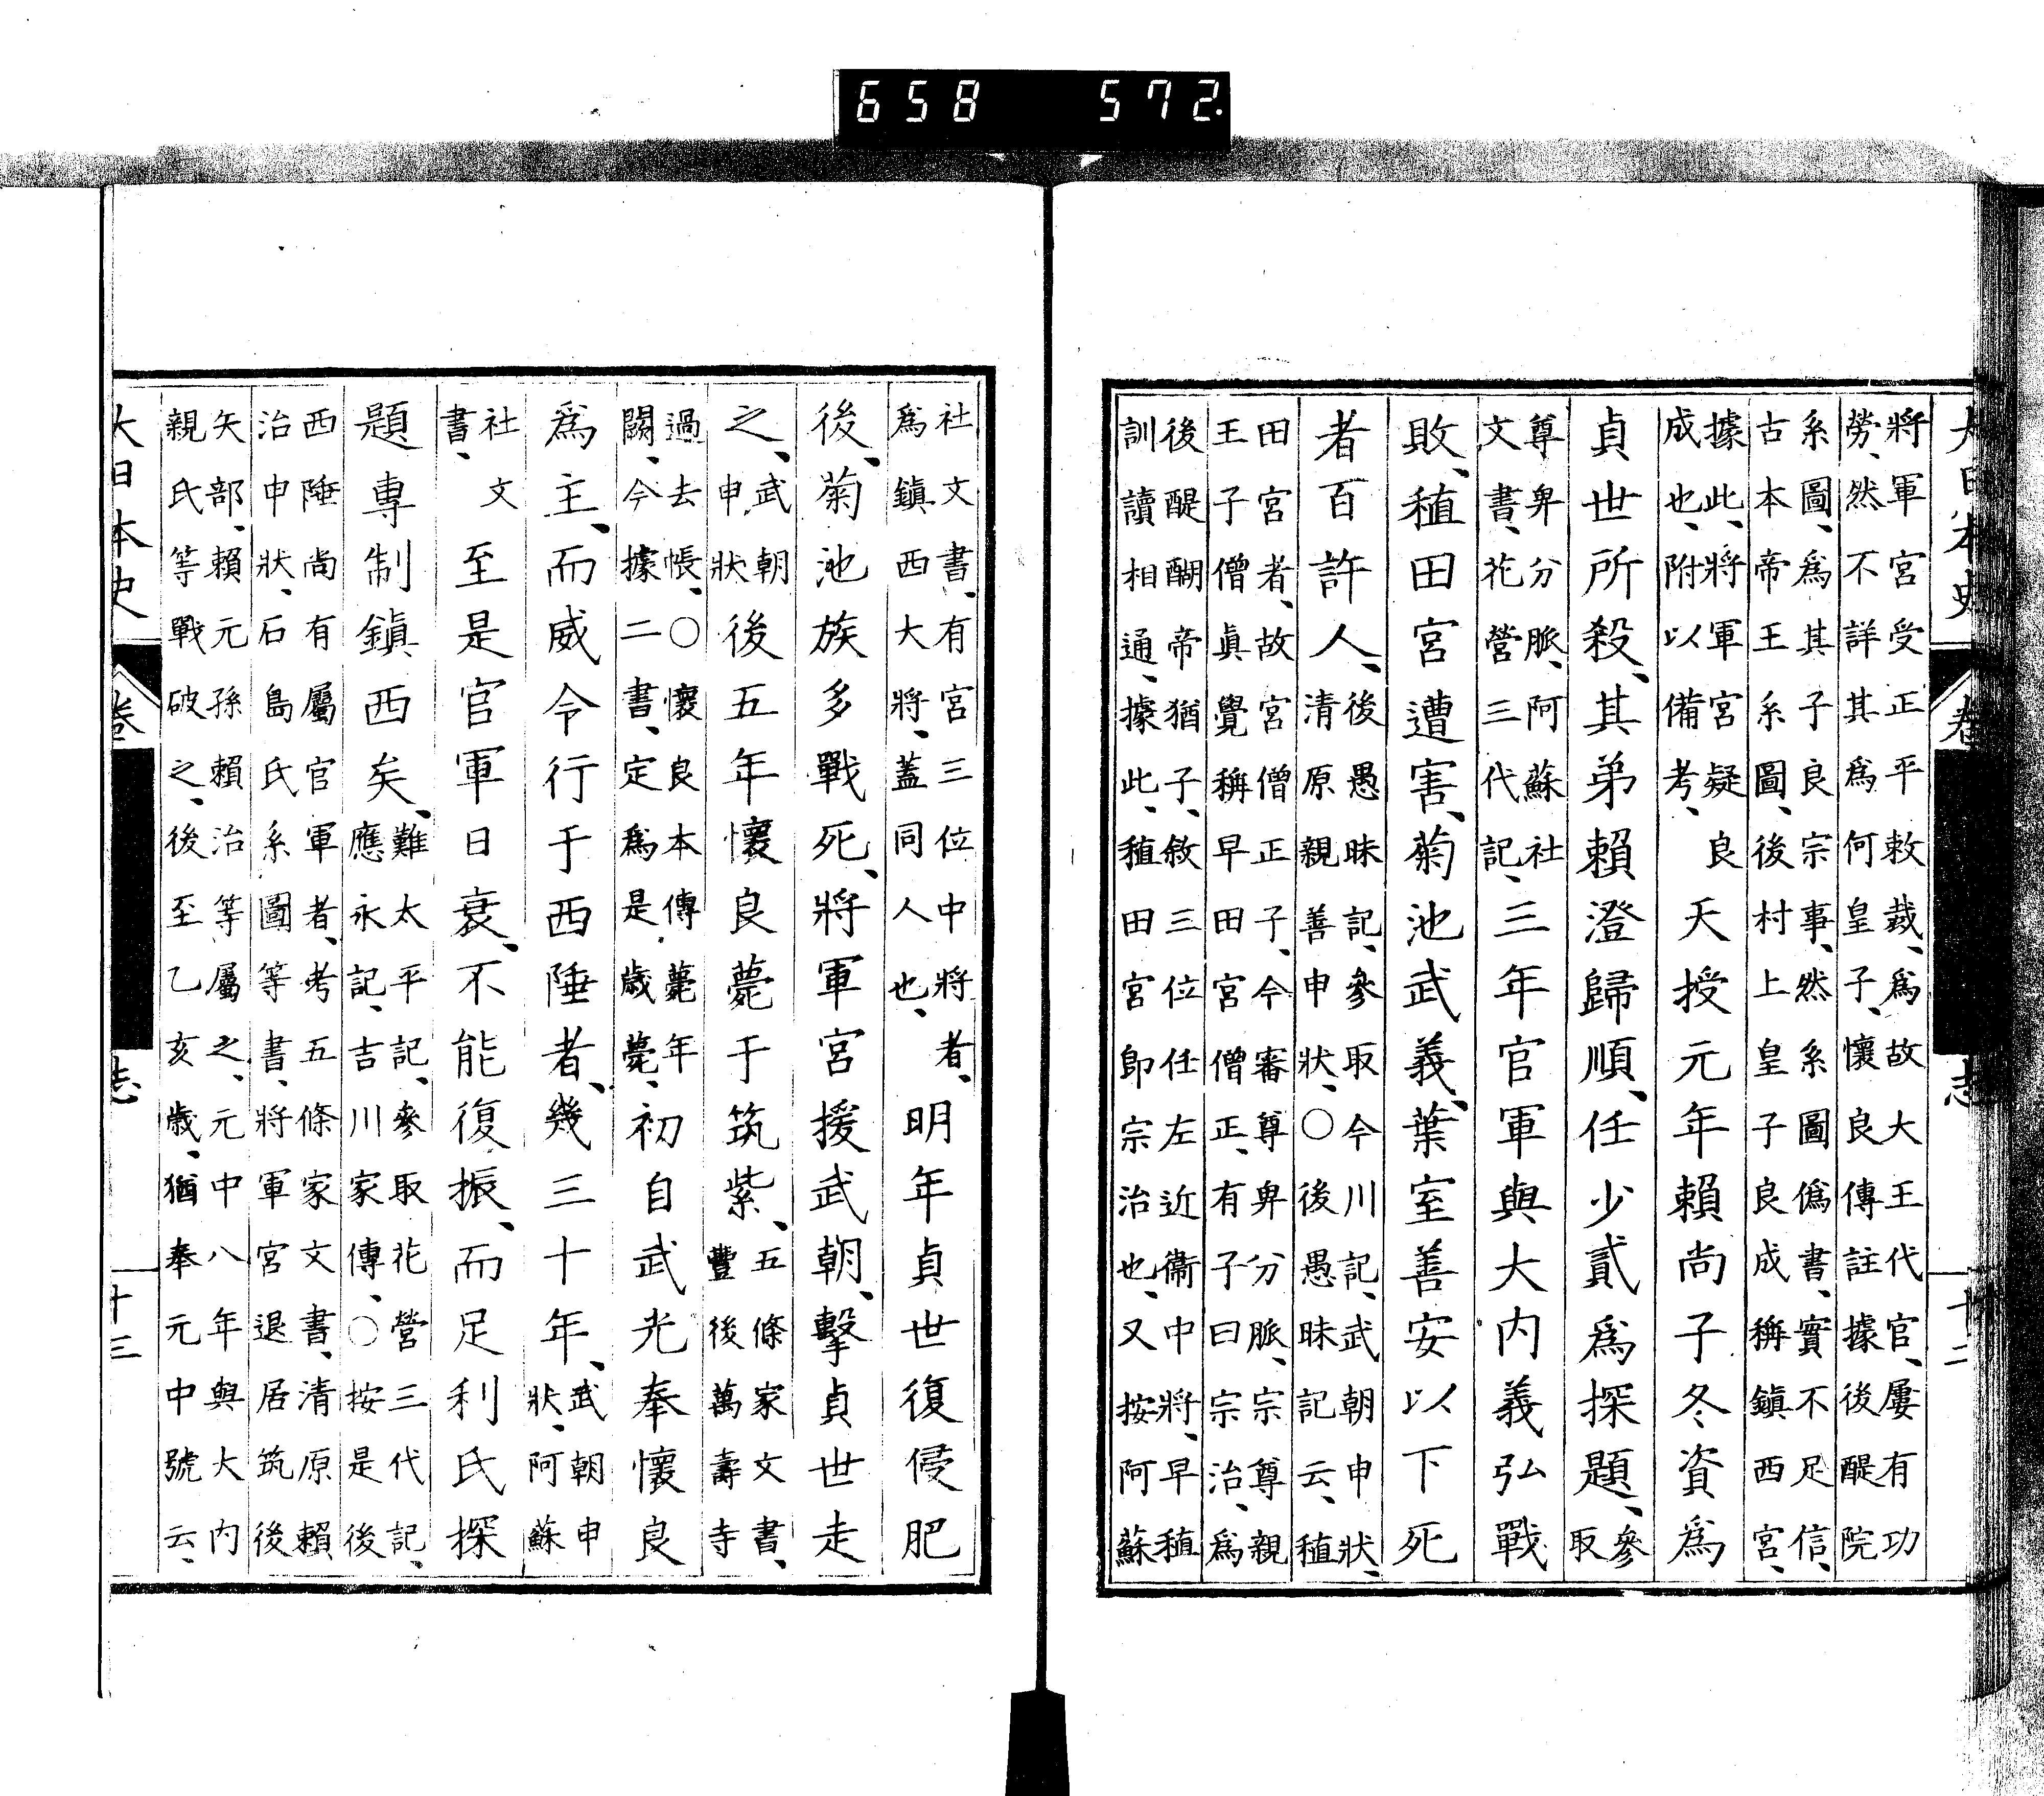 658 572.
大日本史 卷 志 十二
將軍宮受正平敕裁、爲故大王代官、屢有功
勞、然不詳其爲何皇子、懷良傳註據後醍院
系圖、爲其子良宗事、然系圖僞書、實不足信、
古本帝王系圖、後村上皇子良成稱鎭西宮、
據此、將軍宮疑良
成也、附以備考、天授元年賴尚子冬資爲
貞世所殺、其弟賴澄歸順、任少貳爲探題、參取
尊卑分脈、阿蘇社
文書、花營三代記、三年官軍與大内義弘戰
敗、稙田宮遭害、菊池武義、葉室善安以下死
者百許人、後愚昧記、參取今川記、武朝申狀、
清原親善申狀、○後愚昧記云、稙
田宮者、故宮僧正子、今審尊卑分脈、宗尊親
王子僧眞覺稱早田宮僧正、有子曰宗治、爲
後醍醐帝猶子、敘三位任左近衞中將、早稙
訓讀相通、據此、稙田宮卽宗治也、又按阿蘇
社文書、有宮三位中將者、
爲鎭西大將、蓋同人也、明年貞世復侵肥
後、菊池族多戰死、將軍宮援武朝、擊貞世走
之、武朝申狀後五年懷良薨于筑紫、五條家文書、
豐後萬壽寺
過去帳、○懷良本傳薨年
闕、今據二書、定爲是歲薨、初自武光奉懷良
爲主、而威令行于西陲者、幾三十年、武朝申
狀、阿蘇
社文
書、至是官軍日衰、不能復振、而足利氏探
題專制鎭西矣、難太平記、參取花營三代記、
應永記、吉川家傳、○按是後
西陲尚有屬官軍者、考五條家文書、清原賴
治申狀、石島氏系圖等書、將軍宮退居筑後
矢部、賴元孫賴治等屬之、元中八年與大内
親氏等戰破之、後至乙亥歲、猶奉元中號云、
大日本史 卷 志 十三